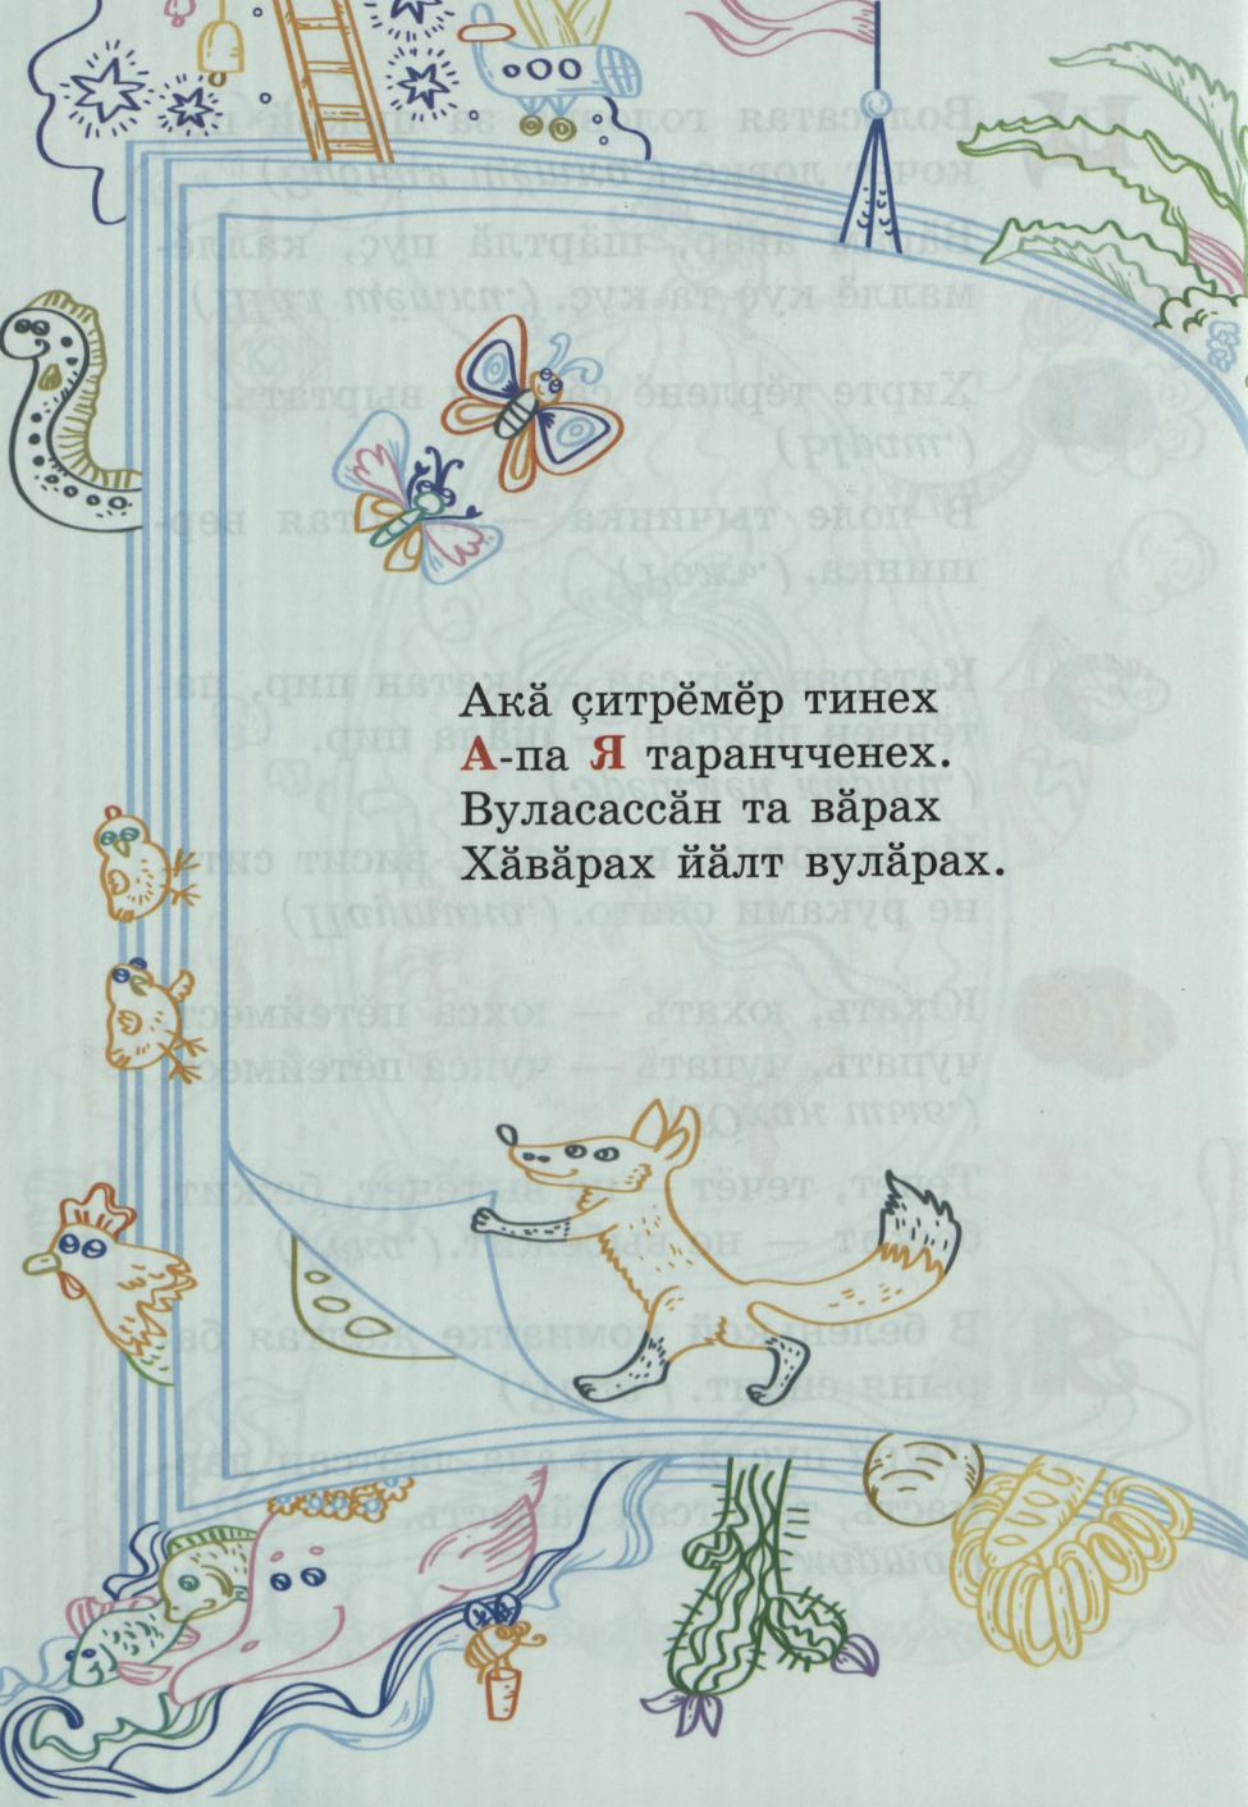 Акӑ ҫитрӗмӗр тинех
А-па Я таранччченех.
Вуласассӑн та вӑрах
Хӑвӑрах йӑлт вулӑрах.